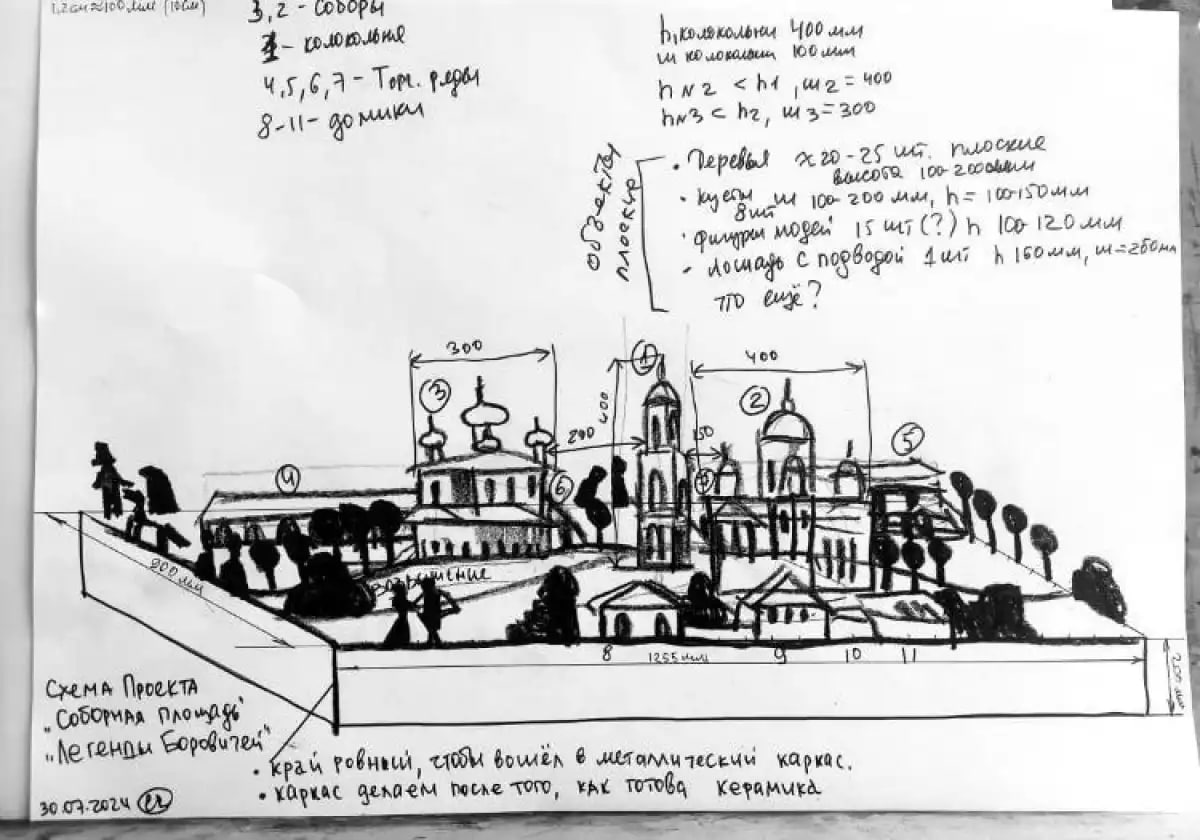 1,2 см ≈ 100 мм (10см)
3,2 - соборы
1 - колокольня
4,5,6,7 - Торг. ряды
8-11 - домики
h, колокольни 400 мм
ш колокольни 100 мм
h N2 < h1, ш2 = 400
h N3 < h2, ш3 = 300
объекты
плоские
• Деревья х 20-25 шт. плоские
высота 100-200 мм
• кусты ш 100-200 мм, h = 100-150 мм
8 шт
• фигуры людей 15 шт (?) h 100-120 мм
• лошадь с подводой 1 шт h 160 мм, ш = 260 мм
что ещё?
300
1
400
3
400
2
200
150
5
4
6
7
800 мм
возвышение
8
1255 мм
9
10
11
200 мм
Схема Проекта
„Соборная площадь"
„Легенды Боровичей"
• край ровный, чтобы вошёл в металлический каркас.
• каркас делаем после того, как готова керамика
30.07.2024